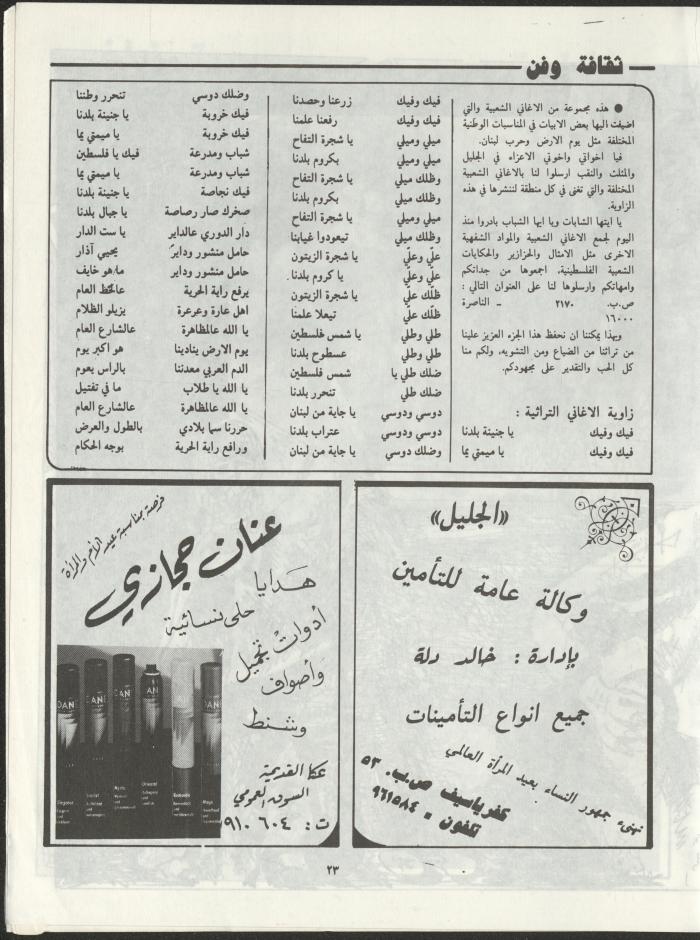 ثقافة وفن
● هذه مجموعة من الاغاني الشعبية والتي
اضيفت اليها بعض الابيات في المناسبات الوطنية
المختلفة مثل يوم الارض وحرب لبنان.
فيا اخواتي واخوتي الاعزاء في الجليل
والمثلث والنقب ارسلوا لنا بالاغاني الشعبية
المختلفة والتي تغنى في كل منطقة لننشرها في هذه
الزاوية.
يا ايتها الشابات ويا ايها الشباب بادروا منذ
اليوم لجمع الاغاني الشعبية والمواد الشفهية
الاخرى مثل الامثال والحزازير والحكايات
الشعبية الفلسطينية، اجمعوها من جداتكم
وامهاتكم وارسلوها لنا على العنوان التالي :
ص.ب. ٢١٧٠ ـ الناصرة
١٦٠٠٠
وبهذا يمكننا ان نحفظ هذا الجزء العزيز علينا
من تراثنا من الضياع ومن التشويه، ولكم منا
كل الحب والتقدير على مجهودكم.
زاوية الاغاني التراثية :
فيك وفيك يا جنينة بلدنا
فيك وفيك يا ميمتي يما
فيك وفيك زرعنا وحصدنا
فيك وفيك رفعنا علمنا
ميلي وميلي يا شجرة التفاح
ميلي وميلي بكروم بلدنا
وظلك ميلي يا شجرة التفاح
وظلك ميلي بكروم بلدنا
ميلي وميلي يا شجرة التفاح
وظلك ميلي تيعودوا غيابنا
علّي وعلّي يا شجرة الزيتون
علّي وعلّي يا كروم بلدنا
ظلك علّي يا شجرة الزيتون
ظلك علّي تيعلا علمنا
طلي وطلي يا شمس فلسطين
طلي وطلي عسطوح بلدنا
ضلك طلي يا شمس فلسطين
ضلك طلي تنحرر بلدنا
دوسي ودوسي يا جاية من لبنان
دوسي ودوسي عتراب بلدنا
وضلك دوسي يا جاية من لبنان
وضلك دوسي تنحرر وطننا
فيك خروبة يا جنينة بلدنا
فيك خروبة يا ميمتي يما
شباب ومدرعة فيك يا فلسطين
شباب ومدرعة يا ميمتي يما
فيك نجاصة يا جنينة بلدنا
صخرك صار رصاصة يا جبال بلدنا
دار الدوري عالداير يا ست الدار
حامل منشور وداير يحيي آذار
حامل منشور وداير ماهو خايف
يرفع راية الحرية عالخط العام
اهل عارة وعرعرة يزيلو الظلام
يا الله عالمظاهرة عالشارع العام
يوم الارض ينادينا هو اكبر يوم
الدم العربي معدننا بالراس يعوم
يا الله يا طلاب ما في تفتيل
يا الله عالمظاهرة عالشارع العام
حررنا سما بلادي بالطول والعرض
ورافع راية الحرية بوجه الحكام
«الجليل»
وكالة عامة للتأمين
بإدارة : خالد دلة
جميع انواع التأمينات
تهنيء جمهور النساء بعيد المرأة العالمي
كفرياسيف ص.ب. ٥٣
تلفون = ٩٦١٥٨٤
فرصة بمناسبة عيد الأم والمرأة
عنان حجازي
هدايا
حلى نسائية
أدوات تجميل
وأصواف
وشنط
عكا القديمة
السوق العمومي
ت : ٩١٠٦٠٤
DANE
٢٣